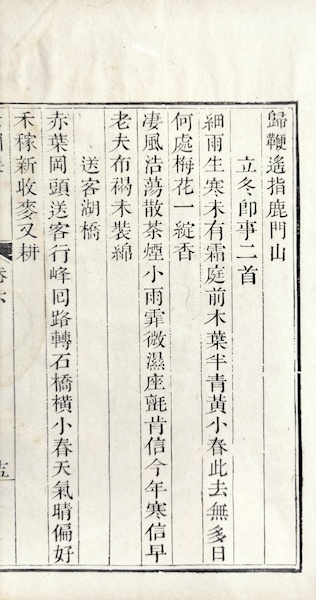 歸鞭遙指鹿門山
立冬卽事二首
細雨生寒未有霜庭前木葉半青黃小春此去無多日
何處梅花一綻香
凄風浩蕩散茶煙小雨霏微濕座氈肯信今年寒信早
老夫布褐未裝綿
送客湖橋
赤葉岡頭送客行峰囘路轉石橋橫小春天氣晴偏好
禾稼新收麥又耕
卷六